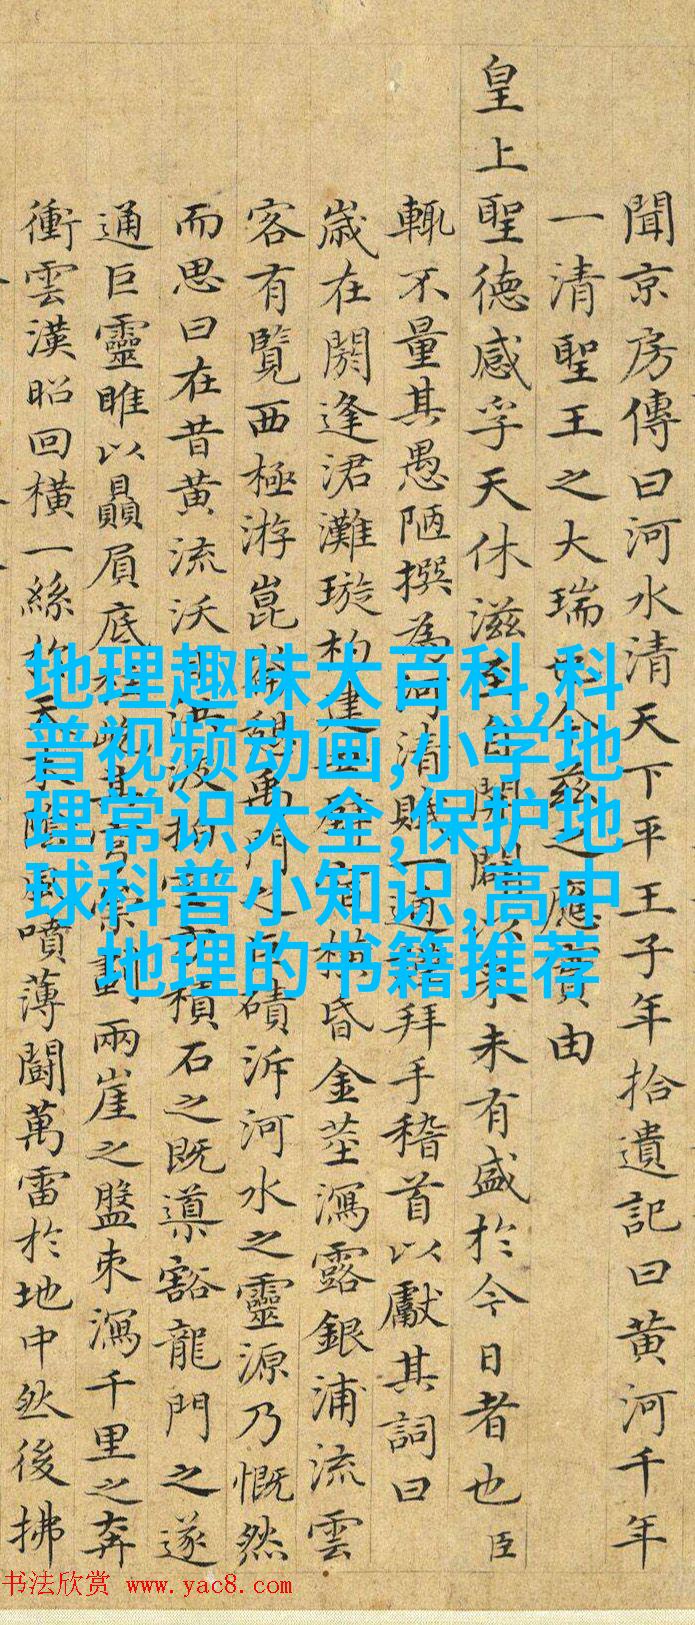 聞京房傳曰河水清天下平王子年拾遺記曰黃河千年
一清聖王之大瑞今茲之應實由
皇上聖德感孚天休滋至自開闢以來未有盛於今日者也臣
輒不量其愚陋撰為河清賦一通拜手稽首以獻其詞曰
歲在閼逢涒灘璇杓建昏金莖瀉露銀浦流雲
客有覽西極游崑崙憩禹門之巨磧泝河水之靈源乃慨然
而思曰在昔黃流沃洪波拍空積石之既導豁龍門之遂
通巨靈睢以贔屓底柱屹其劃兩崖之盤束瀉千里之奔
衝雲漢昭回橫一絲於天噴薄鬭萬雷於地中然後拂
地理趣味大百科,科
普视频动画,小学地
理常识大全,保护地
球科普小知识,高中
地理的书籍推荐
书法欣赏 www.yac8.com